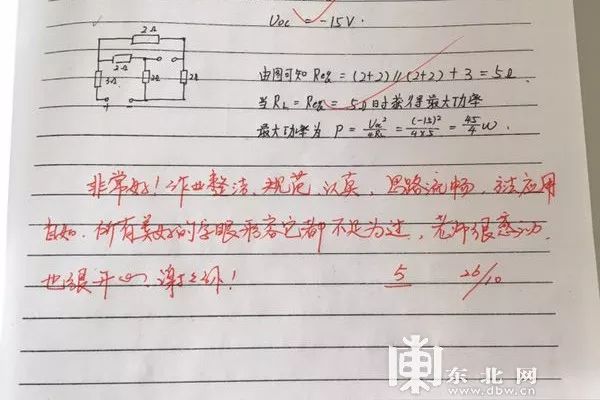 Uoc = -15V.
2Ω
2Ω
3Ω
2Ω
2Ω
由图可知 Req = (2+2)//(2+2) + 3 = 5Ω
当 RL = Req = 5Ω 时获得最大功率
最大功率为 P = Uoc²/4RL = (-15)²/4×5 = 45/4 W.
非常好！作业整洁、规范、认真，思路流畅，方法应用
自如，所有美好的字眼形容它都不足为过，老师很感动，
也很开心，谢
5 26/10
东北网
www.dbw.cn